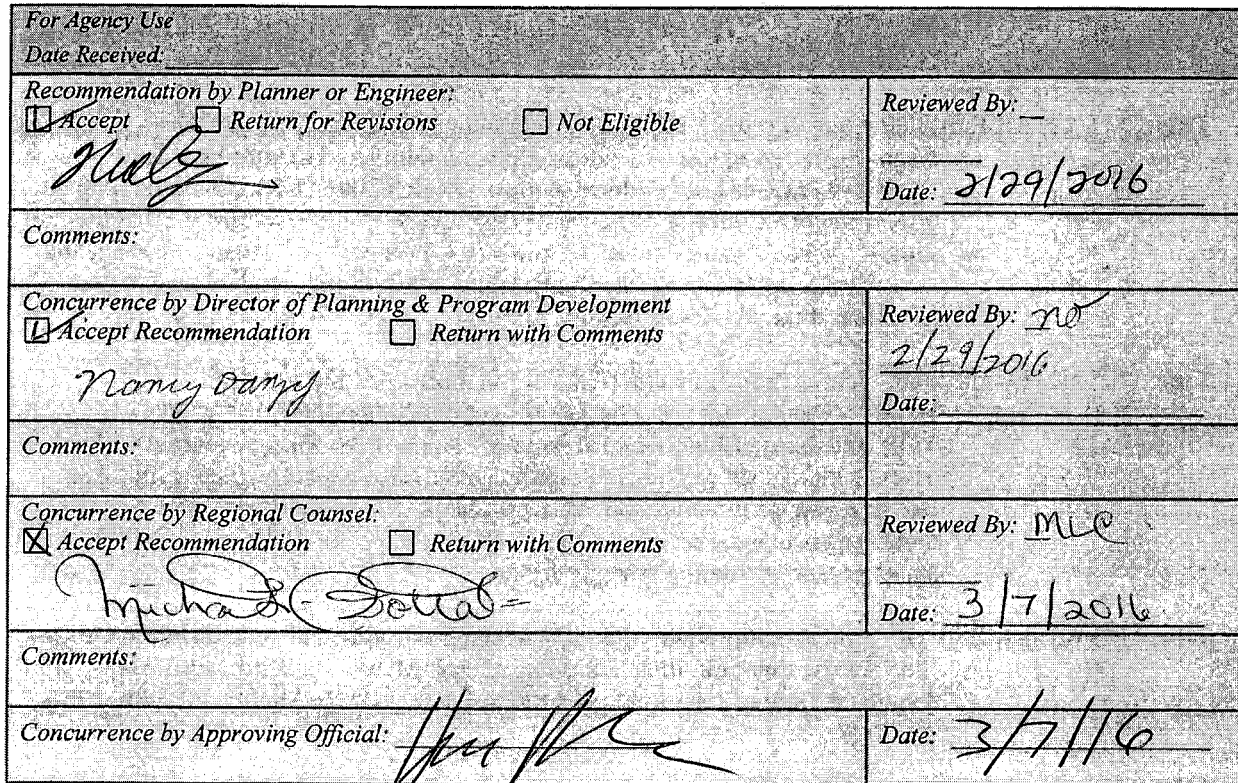 For Agency Use
Date Received:
Recommendation by Planner or Engineer:
Accept Return for Revisions Not Eligible
Reviewed By:
Date: 2/29/2016
Comments:
Concurrence by Director of Planning & Program Development
Accept Recommendation Return with Comments
Nancy Danzy
Reviewed By: ND
2/29/2016
Date:
Comments:
Concurrence by Regional Counsel:
Accept Recommendation Return with Comments
Reviewed By:
Date: 3/7/2016
Comments:
Concurrence by Approving Official:
Date: 3/7/16